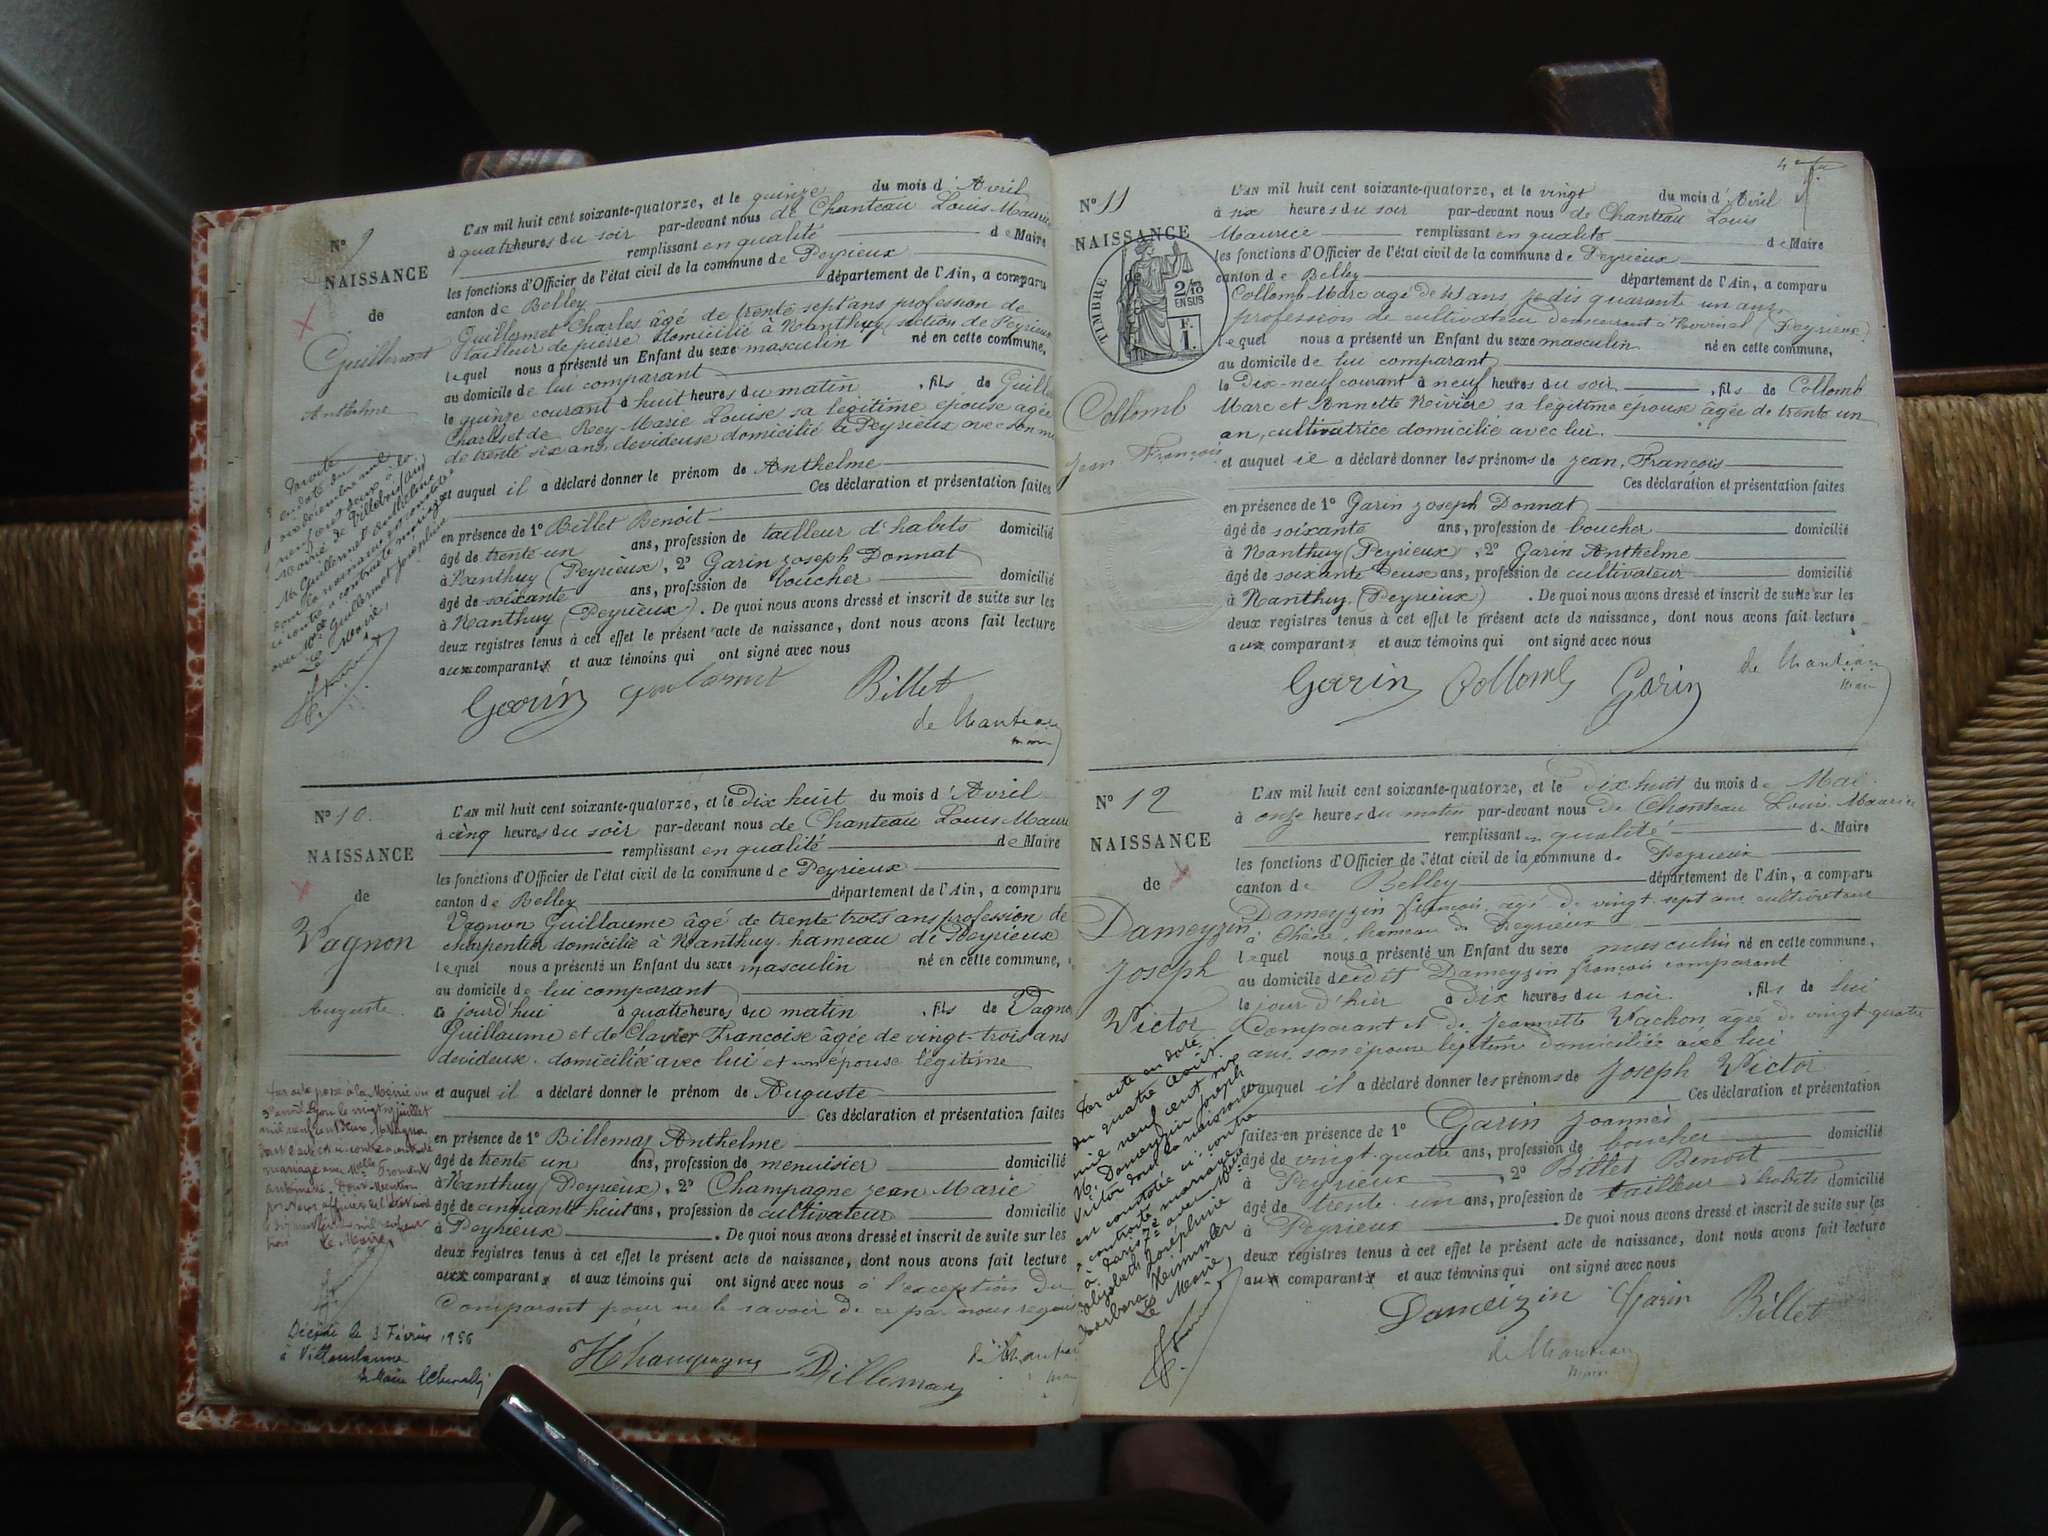 N° 9
NAISSANCE
de
Guillermet
Anthelme
L'AN mil huit cent soixante-quatorze, et le quinze du mois d'Avril
à quatre heures du soir par-devant nous de Chanteau Louis Maurice
remplissant en qualité de Maire
les fonctions d'Officier de l'état civil de la commune de Peyrieux
canton de Belley département de l'Ain, a comparu
Guillermet Charles âgé de trente sept ans profession de
tailleur de pierre domicilié à Nanthuy (section de Peyrieux
lequel nous a présenté un Enfant du sexe masculin né en cette commune,
au domicile de lui comparant
le quinze courant à huit heures du matin , fils de Guille
Charles et de Rey Marie Louise sa légitime épouse agée
de trente six ans, devideuse domicilié à Peyrieux avec son
et auquel il a déclaré donner le prénom de Anthelme
Ces déclaration et présentation faites
en présence de 1° Billet Benoit
âgé de trente un ans, profession de tailleur d'habits domicilié
à Nanthuy (Peyrieux), 2° Garin Joseph Donnat
âgé de soixante ans, profession de boucher domicilié
à Nanthuy (Peyrieux). De quoi nous avons dressé et inscrit de suite sur les
deux registres tenus à cet effet le présent acte de naissance, dont nous avons fait lecture
aux comparants et aux témoins qui ont signé avec nous
Garin Guillermet Billet
de Chanteau
maire
N° 10.
NAISSANCE
de
Vagnon
Auguste
L'AN mil huit cent soixante-quatorze, et le Dix huit du mois d'Avril
à cinq heures du soir par-devant nous de Chanteau Louis Mauri
remplissant en qualité de Maire
les fonctions d'Officier de l'état civil de la commune de Peyrieux
canton de Belley département de l'Ain, a comparu
Vagnon Guillaume âgé de trente trois ans profession de
charpentier domicilié à Nanthuy hameau de Peyrieux
lequel nous a présenté un Enfant du sexe masculin né en cette commune,
au domicile de lui comparant
ce jourd'hui à quatre heures du matin , fils de Vagno
Guillaume et de Clavier Françoise âgée de vingt-trois ans
devideuse domiciliée avec lui et son épouse légitime
et auquel il a déclaré donner le prénom de Auguste
Ces déclaration et présentation faites
en présence de 1° Billemaz Anthelme
âgé de trente un ans, profession de menuisier domicilié
à Nanthuy (Peyrieux), 2° Champagne Jean Marie
âgé de cinquante huit ans, profession de cultivateur domicilié
à Peyrieux. De quoi nous avons dressé et inscrit de suite sur les
deux registres tenus à cet effet le présent acte de naissance, dont nous avons fait lecture
aux comparants et aux témoins qui ont signé avec nous à l'exception du
Comparant pour ne le savoir de ce par nous requis
Décédé le 3 Février 1956
à Villeurbanne
Champagne Billemaz
N° 11
NAISSANCE
de
TIMBRE
2/10
EN SUS
F.
1.
Collomb
Jean François
L'AN mil huit cent soixante-quatorze, et le vingt du mois d'Avril
à six heures du soir par-devant nous de Chanteau Louis
Maurice remplissant en qualité de Maire
les fonctions d'Officier de l'état civil de la commune de Peyrieux
canton de Belley département de l'Ain, a comparu
Collomb Marc agé de 41 ans je dis quarante un ans
profession de cultivateur demeurant à (Peyrieux)
lequel nous a présenté un Enfant du sexe masculin né en cette commune,
au domicile de lui comparant
le Dix-neuf courant à neuf heures du soir , fils de Collomb
Marc et Annette Rivière sa légitime épouse âgée de trente un
an, cultivatrice domicilié avec lui.
et auquel il a déclaré donner les prénoms de Jean, François
Ces déclaration et présentation faites
en présence de 1° Garin Joseph Donnat
âgé de soixante ans, profession de boucher domicilié
à Nanthuy (Peyrieux), 2° Garin Anthelme
âgé de soixante deux ans, profession de cultivateur domicilié
à Nanthuy (Peyrieux). De quoi nous avons dressé et inscrit de suite sur les
deux registres tenus à cet effet le présent acte de naissance, dont nous avons fait lecture
aux comparants et aux témoins qui ont signé avec nous
Garin Collomb Garin
de Chanteau
maire
N° 12
NAISSANCE
de
Dameyzin
Joseph
Victor
L'AN mil huit cent soixante-quatorze, et le Dix huit du mois de Mai
à onze heures du matin par-devant nous De Chanteau Louis Maurice
remplissant en qualité de Maire
les fonctions d'Officier de l'état civil de la commune de Peyrieux
canton de Belley département de l'Ain, a comparu
Dameyzin françois, agé de vingt sept ans cultivateur
à Chêne, hameau de Peyrieux
lequel nous a présenté un Enfant du sexe masculin né en cette commune,
au domicile de dit Dameyzin françois comparant
le jour d'hier à dix heures du soir , fils de lui
Comparant et de Jeannette Vachon agée de vingt quatre
ans, son épouse légitime domiciliée avec lui
auquel il a déclaré donner les prénoms de Joseph Victor
Ces déclaration et présentation
faites en présence de 1° Garin Joannès
âgé de vingt quatre ans, profession de boucher domicilié
à Peyrieux, 2° Billet Benoit
âgé de trente un ans, profession de tailleur d'habits domicilié
à Peyrieux. De quoi nous avons dressé et inscrit de suite sur les
deux registres tenus à cet effet le présent acte de naissance, dont nous avons fait lecture
aux comparants et aux témoins qui ont signé avec nous
Par acte en date
du quatre Août
mil neuf cent six
M. Dameyzin Joseph
Victor dont la naissance
est constatée ci-contre
a contracté mariage
à Paris avec
Elizabeth Joséphine
Barbara
Le Maire,
Dameizin Garin Billet
de Chanteau
maire